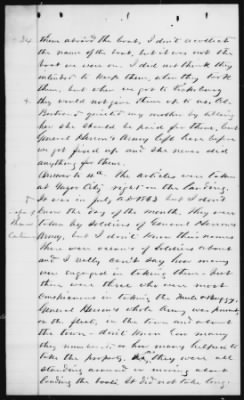 them aboard the boat, I don't recollect
the name of the boat, but it was not the
boat we were on. I did not think they
intended to keep them, when they took
them, but when we got to Vicksburg
they would not give them up to us.
quieted my mother by telling
her she should be paid for them, but
General Herron's Army left here before
we got fixed up and she never did
anything for them.
Answer to 4th. The articles were taken
at Yazoo City right on the landing.
It was in July A.D. 1863 but I don't
know the day of the month. They were
taken by Soldiers of General Herron's
Army, but I don't know their names
There were dozens of Soldiers about
and I really can't say how many
were engaged in taking them - but
there were three who were most
conspicuous in taking the mules & buggy.
General Herron's whole Army was present,
on the fleet, in the town and about
the town - don't know how many
they numbered or how many helped to
take the property. They were all
standing around or moving about
loading the boats. It did not take long.